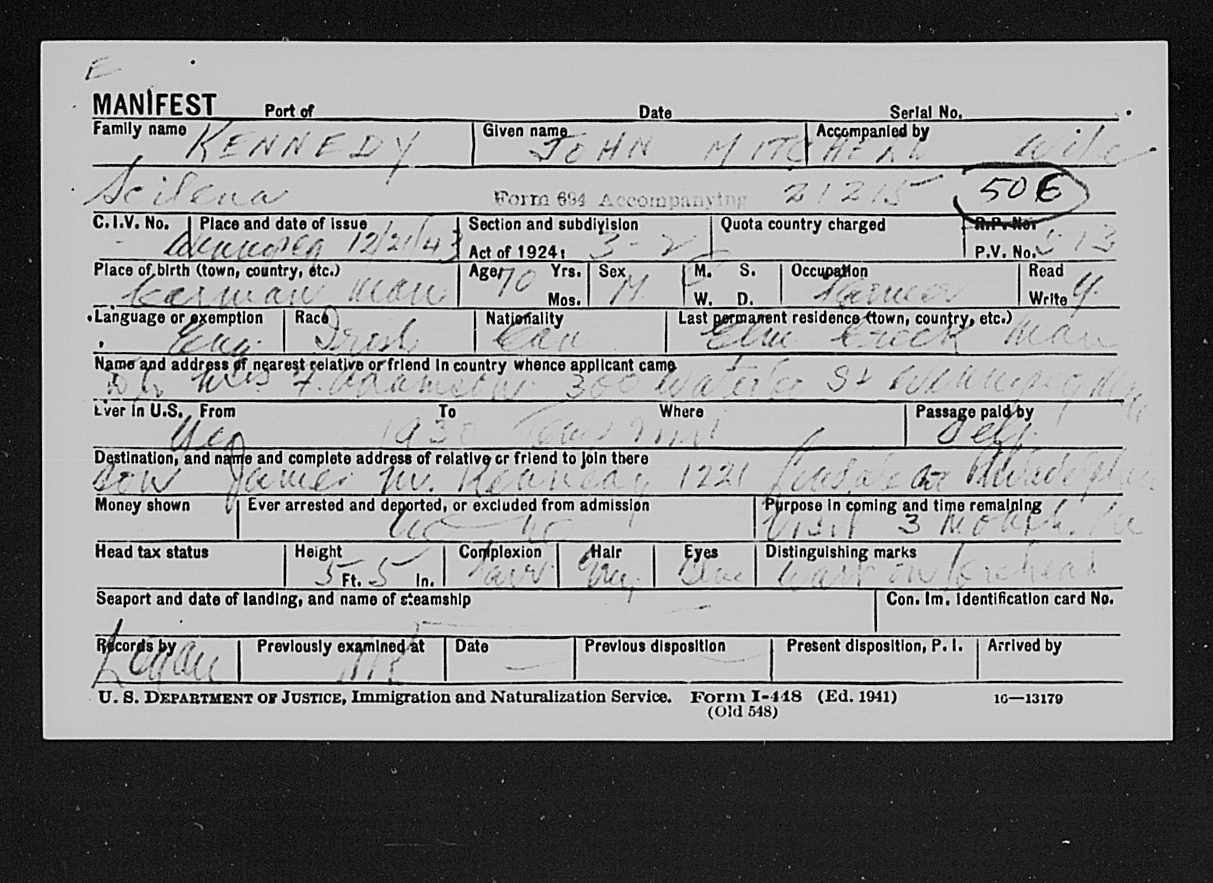 E
MANIFEST Port of Date Serial No.
Family name KENNEDY Given name JOHN MITCHELL Accompanied by Wife
Seilena Form 694 Accompanying 21215 506
C.I.V. No. Place and date of issue Winnipeg 12/21/43 Section and subdivision Act of 1924: 3-2 Quota country charged R.P. No. P.V. No. 513
Place of birth (town, country, etc.) Carman Man Age 70 Yrs. Mos. Sex M M. S. W. D. Occupation Farmer Read Write Y
Language or exemption Eng. Race Irish Nationality Can Last permanent residence (town, country, etc.) Elm Creek Man
Name and address of nearest relative or friend in country whence applicant came
Mrs 300 St Winnipeg Man
Ever in U.S. Yes From To Where Passage paid by Self
Destination, and name and complete address of relative or friend to join there
Son James M. Kennedy 1221 Philadelphia
Money shown Ever arrested and deported, or excluded from admission Purpose in coming and time remaining Visit 3 months
Head tax status Height 5 Ft. 5 In. Complexion Fair Hair Gry Eyes Blue Distinguishing marks on forehead
Seaport and date of landing, and name of steamship Con. Im. Identification card No.
Records by Logan Previously examined at Date Previous disposition Present disposition, P. I. Arrived by
U. S. DEPARTMENT OF JUSTICE, Immigration and Naturalization Service. Form I-448 (Ed. 1941) 16—13179
(Old 548)